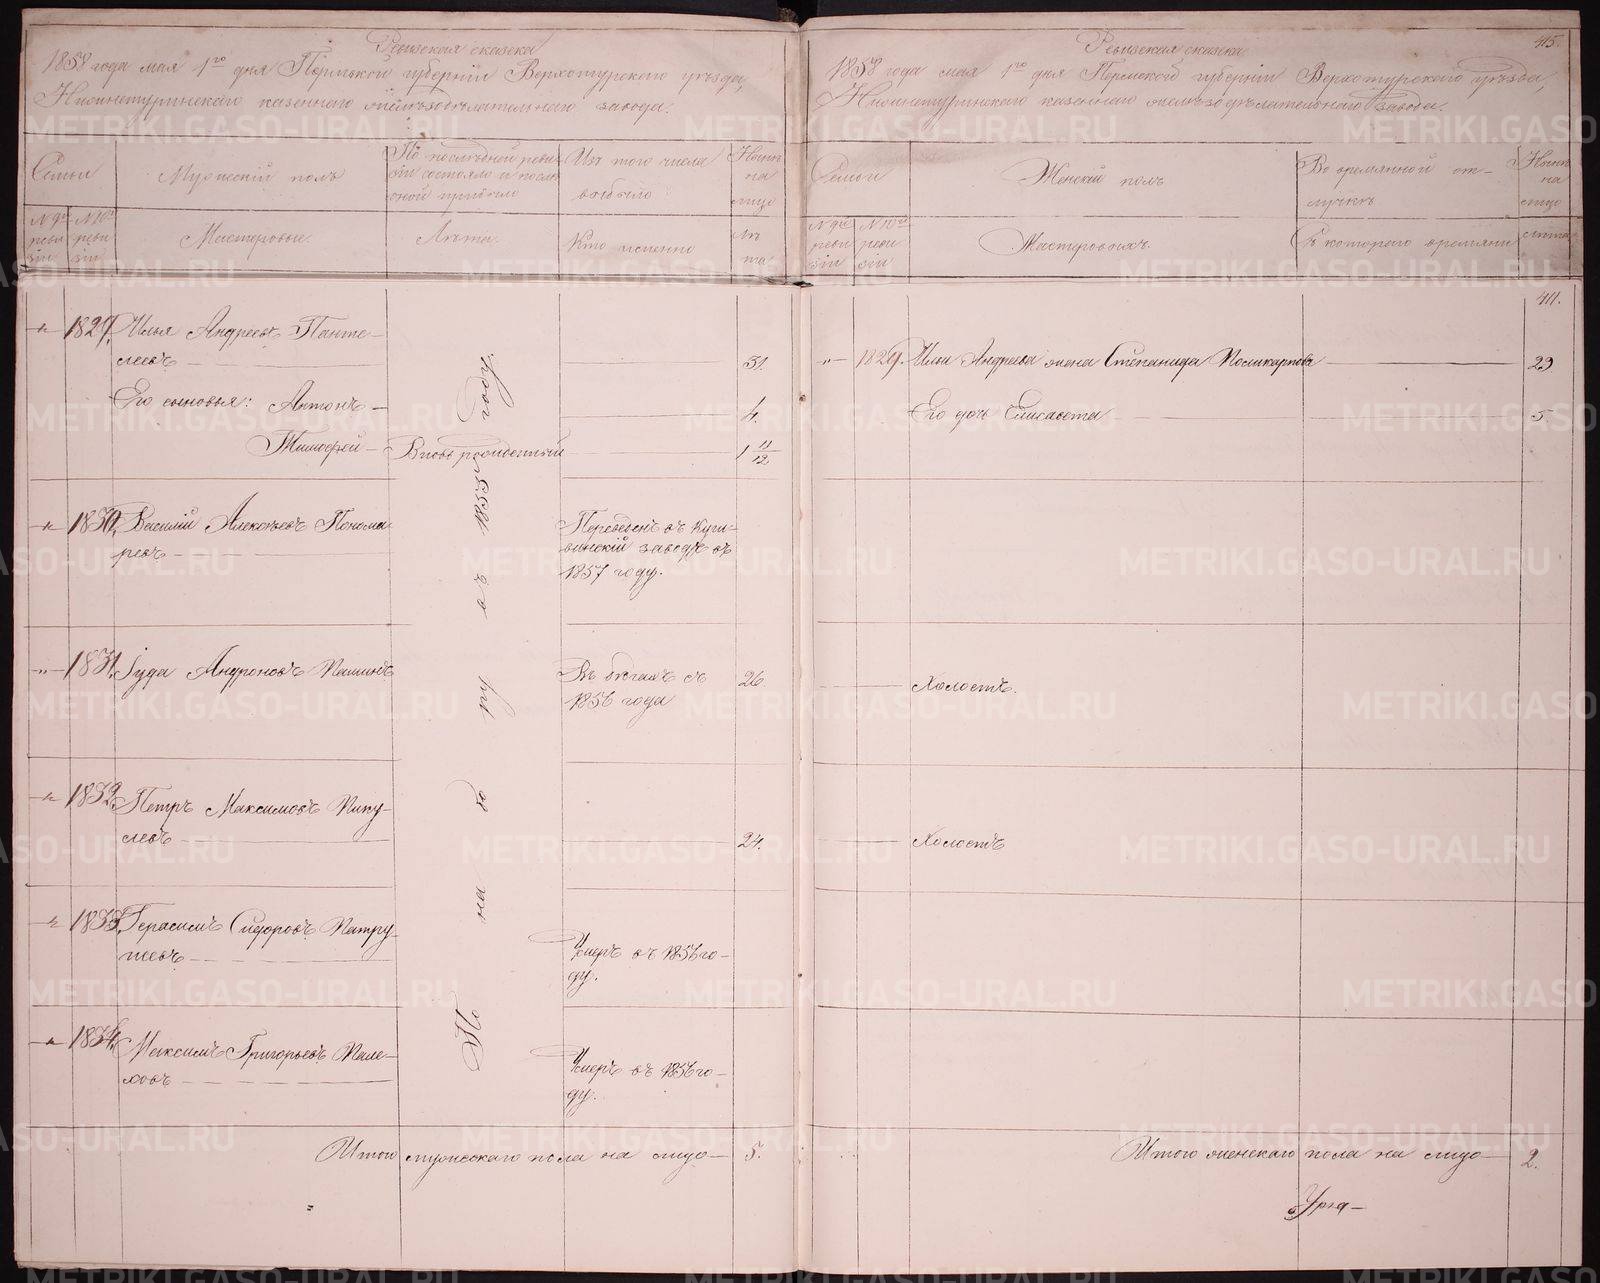 Ревизская сказка
1858 года мая 1го дня Пермской губернии Верхотурского уѣзда,
Нижнетуринскаго казеннаго желѣзодѣлательнаго завода.
Семьи
Мужескій полъ
По послѣдней реви-
зіи состояло и послѣ
оной прибыло
Изъ того числа
выбыло
Нынѣ
на
лицо
№ 9й
реви
зіи
№ 10й
реви
зіи
Мастеровые
Лѣта
Кто именно
Лѣ
та
„ 1829. Илья Андреевъ Панте-
леевъ 31.
Его сыновья: Антонъ 4.
Тимофей Вновь рожденный 1 11/12
По на бо ру въ 1853 году.
„ 1830. Василій Алексѣевъ Понома-
ревъ
Переведенъ въ Куш-
винскій заводъ въ
1857 году.
„ 1831. Іуда Андроновъ Пашинъ
Въ бѣгахъ съ 26
1856 года
„ 1832. Петръ Максимовъ Пику-
левъ 24.
„ 1833. Герасимъ Сидоровъ Патру-
шевъ
Умеръ въ 1856 го-
ду.
„ 1834. Максимъ Григорьевъ Пале-
ховъ
Умеръ въ 1856 го-
ду.
Итого мужескаго пола на лицо 5.
Ревизская сказка 415.
1858 года мая 1го дня Пермской губернии Верхотурского уѣзда,
Нижнетуринскаго казеннаго желѣзодѣлательнаго завода.
Семьи
Женскій полъ
Во времянной от-
лучкѣ
Нынѣ
на
лицо
№ 9й
реви
зіи
№ 10й
реви
зіи
Мастеровыхъ.
Съ котораго времяни
лѣта
411.
„ 1829. Ильи Андреева жена Степанида Поликарпова 29
Его дочь Елисавета 5.
Холостъ.
Холостъ
Итого женскаго пола на лицо 2.
METRIKI.GASO-URAL.RU